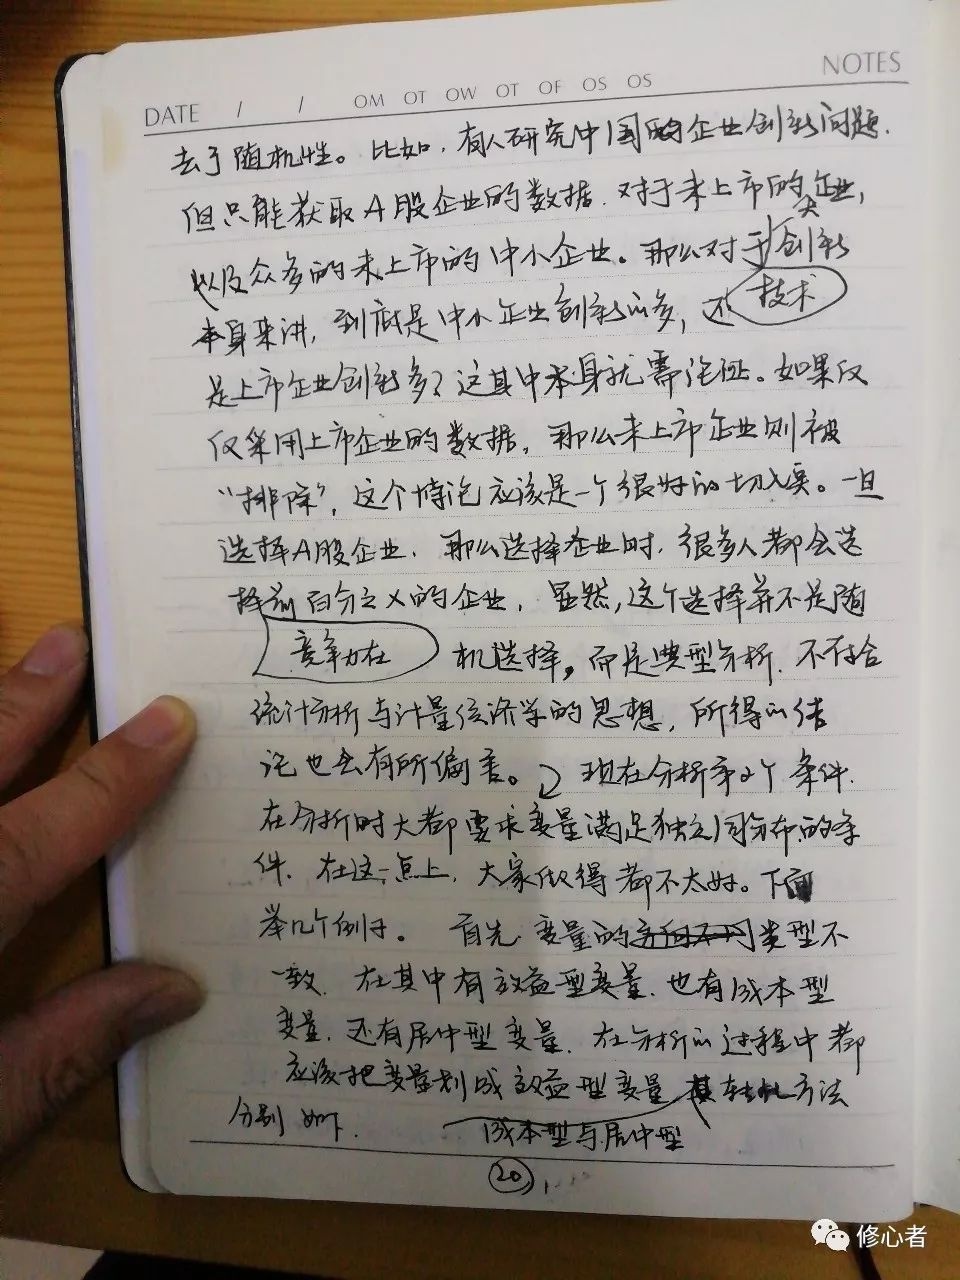 NOTES
DATE / / OM OT OW OT OF OS OS
去了随机性。比如,有人研究中国的企业创新问题.
但只能获取A股企业的数据.对于未上市的大企业,
以及众多的未上市的中小企业。那么对于创新
技术
本身来讲,到底是中小企业创新的多,还
是上市企业创新多?这其中本身就需论证。如果仅
仅采用上市企业的数据,那么未上市企业则被
“排除”,这个悖论应该是一个很好的切入点。一旦
选择A股企业,那么选择企业时,很多人都会选
择前百分之X的企业,显然,这个选择并不是随
竞争力在
机选择,而是典型分析.不符合
统计分析与计量经济学的思想,所得的结
论也会有所偏差。现在分析第2个条件.
在分析时大都要求变量满足独立同分布的条
件.在这一点上,大家做得都不太好。下面
举几个例子。首先.变量的类型不
一致.在其中有效益型变量.也有成本型
变量.还有居中型变量.在分析的过程中都
应该把变量划成效益型变量 其转化方法
分别如下.
成本型与居中型
20
修心者